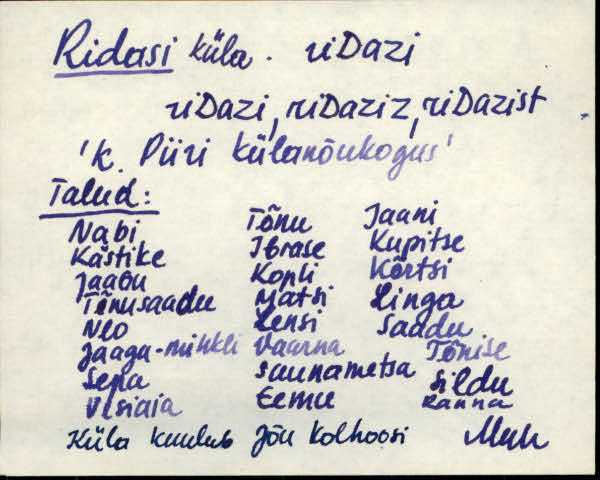 Ridasi küla. riDazi
riDazi, riDaziz, riDazist
'k. Piiri külanõukogus'
Talud:
Nabi
Kästike
Jaagu
Tõnusaadu
Neo
Jaaga-mihkli
Sepa
Visiaia
Tõnu
Ibrase
Kopli
Matsi
Lensi
Vaarna
Saunametsa
Eemu
Jaani
Kupitse
Kõrtsi
Linga
Saadu
Tõnise
Sildu
Ranna
Küla kuulub Jõu Kolhoosi Muh